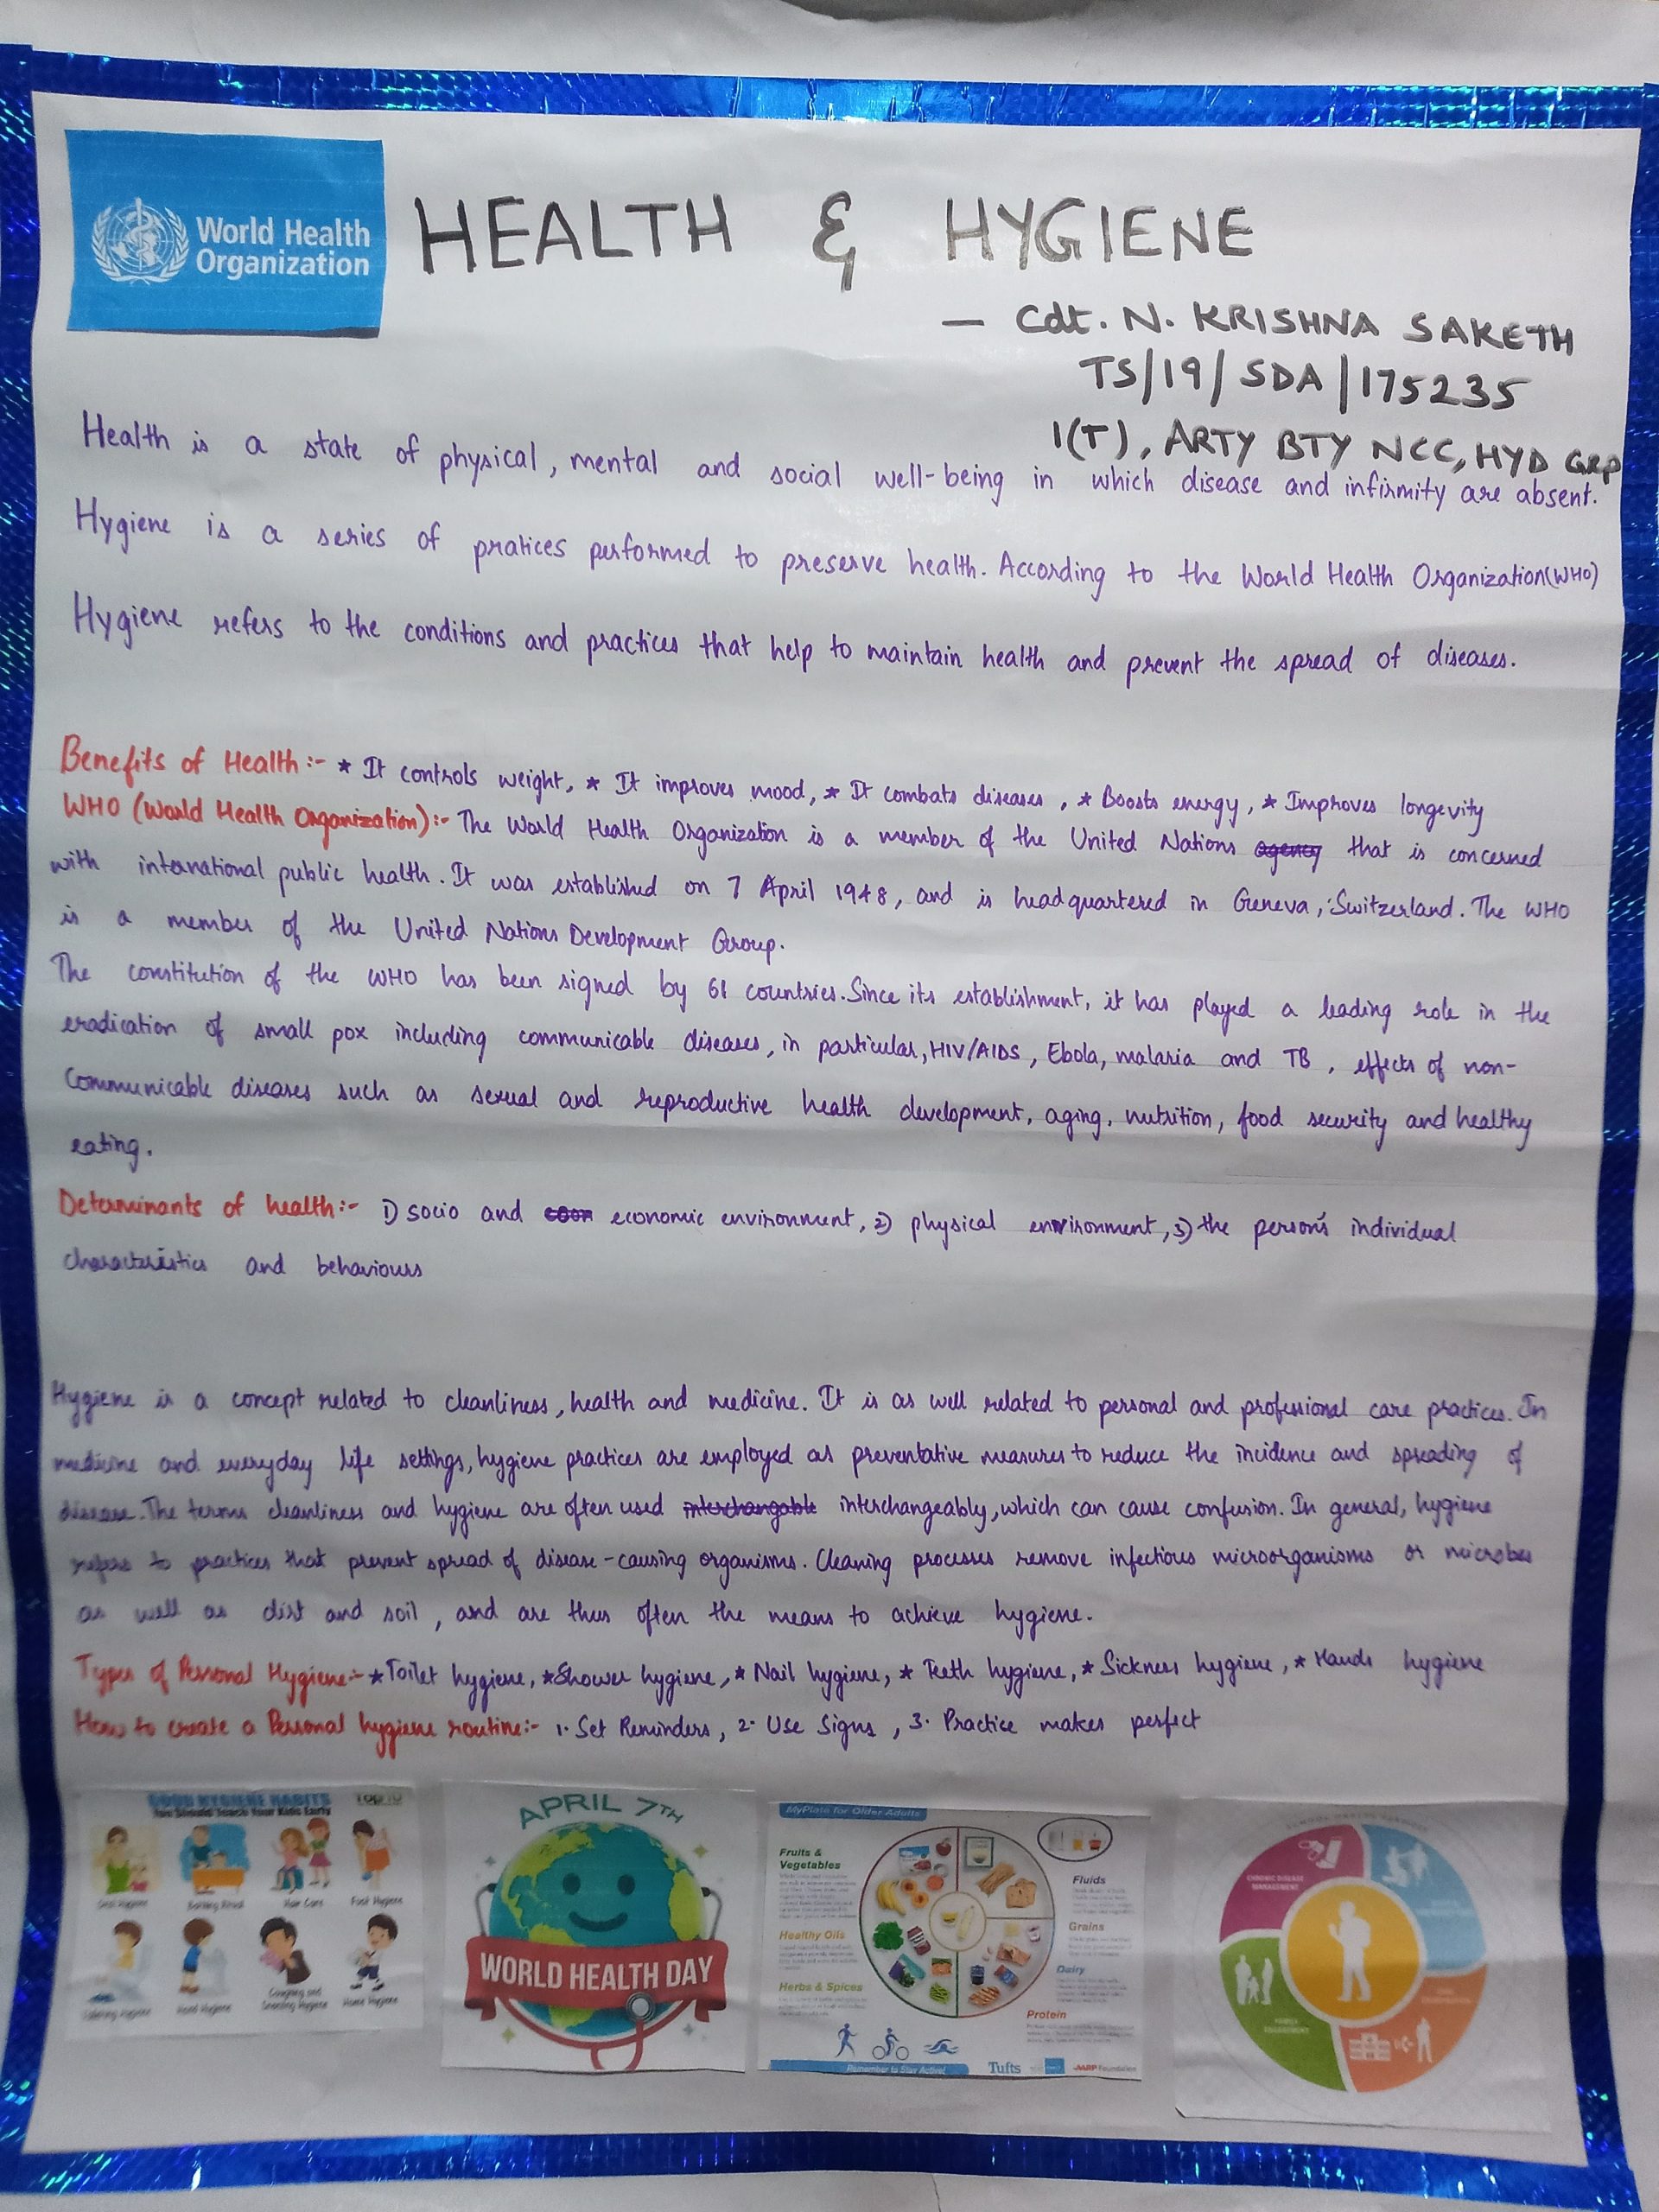 World Health
Organization
HEALTH & HYGIENE
— Cdt. N. KRISHNA SAKETH
TS/19/SDA/175235
1(T), ARTY BTY NCC, HYD GRP
Health is a state of physical, mental and social well-being in which disease and infirmity are absent.
Hygiene is a series of pratices performed to preserve health. According to the World Health Organization(WHO)
Hygiene refers to the conditions and practices that help to maintain health and prevent the spread of diseases.
Benefits of Health:- * It controls weight, * It improves mood, * It combats diseases, * Boosts energy, * Improves longevity
WHO (World Health Organization):- The World Health Organization is a member of the United Nations agency that is concerned
with international public health. It was established on 7 April 1948, and is headquartered in Geneva, Switzerland. The WHO
is a member of the United Nations Development Group.
The constitution of the WHO has been signed by 61 countries. Since its establishment, it has played a leading role in the
eradication of small pox including communicable diseases, in particular, HIV/AIDS, Ebola, malaria and TB, effects of non-
Communicable diseases such as sexual and reproductive health development, aging, nutrition, food security and healthy
eating.
Determinants of health:- 1) socio and economic environment, 2) physical environment, 3) the person's individual
characteristics and behaviours
Hygiene is a concept related to cleanliness, health and medicine. It is as well related to personal and professional care practices. In
medicine and everyday life settings, hygiene practices are employed as preventative measures to reduce the incidence and spreading of
disease. The terms cleanliness and hygiene are often used interchangable interchangeably, which can cause confusion. In general, hygiene
refers to practices that prevent spread of disease-causing organisms. Cleaning processes remove infectious microorganisms or microbes
as well as dirt and soil, and are thus often the means to achieve hygiene.
Types of Personal Hygiene:- * Toilet hygiene, * Shower hygiene, * Nail hygiene, * Teeth hygiene, * Sickness hygiene, * Hands hygiene
How to create a Personal hygiene routine:- 1. Set Reminders, 2. Use Signs, 3. Practice makes perfect
GOOD HYGIENE HABITS
You Should Teach Your Kids Early
Hair Care
Foot Hygiene
Hand Hygiene
Coughing and
Sneezing Hygiene
Home Hygiene
APRIL 7TH
WORLD HEALTH DAY
MyPlate for Older Adults
Fruits &
Vegetables
Healthy Oils
Herbs & Spices
Fluids
Grains
Dairy
Protein
Remember to Stay Active!
Tufts
AARP Foundation
CHRONIC DISEASE
MANAGEMENT
FAMILY
ENGAGEMENT